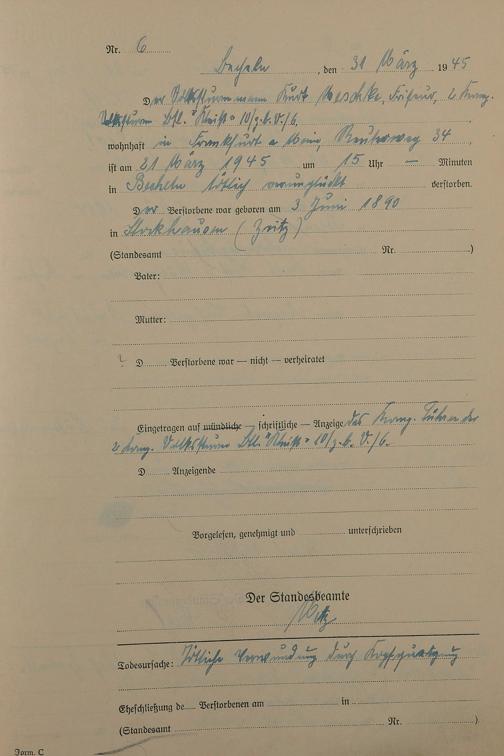 Nr. 6
Becheln, den 31 März 1945
Der Volkssturmmann Kurt Maschke, Friseur, 2 Komp.
Volkssturm Btl. 10/z. b. V./6.
wohnhaft in Frankfurt a Main, Reuterweg 34,
ist am 21 März 1945 um 15 Uhr — Minuten
in Becheln tötlich verunglückt verstorben.
Der Verstorbene war geboren am 3 Juni 1890
in Stockhausen (Zeitz)
(Standesamt Nr. )
Vater:
Mutter:
D Verstorbene war — nicht — verheiratet
Eingetragen auf mündliche — schriftliche — Anzeige des Komp. Führer der
2 Komp. Volkssturm Btl. 10/z. b. V./6.
D Anzeigende
Vorgelesen, genehmigt und unterschrieben
Der Standesbeamte
Todesursache: Tötliche Verwundung durch Kopfquetschung
Eheschließung de Verstorbenen am in
(Standesamt Nr. )
Form. C